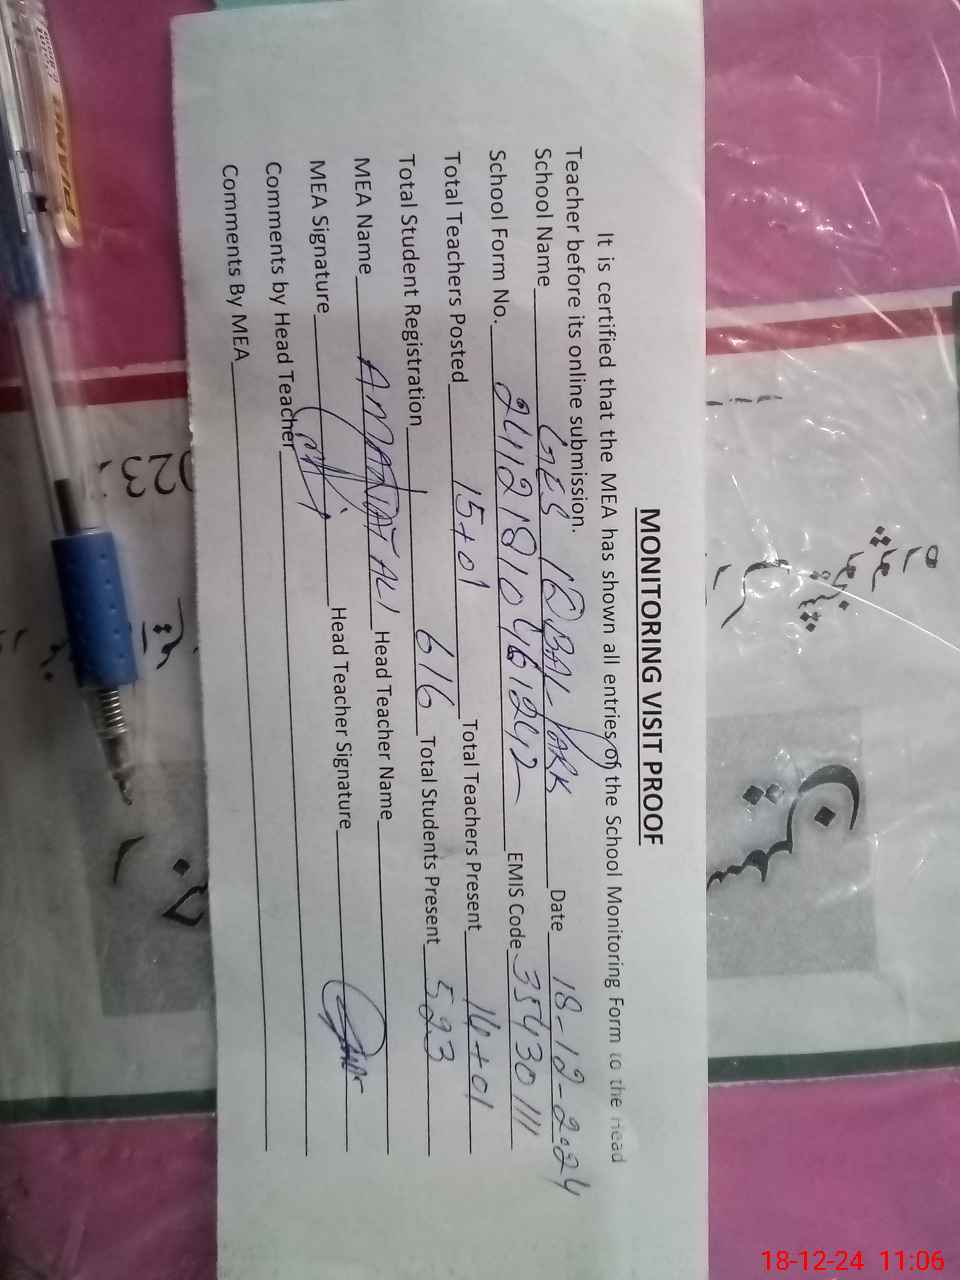 MONITORING VISIT PROOF
It is certified that the MEA has shown all entries of the School Monitoring Form to the head
Teacher before its online submission.
School Name GES IQBAL PARK Date 18-12-2024
School Form No. EMIS Code 35430111
Total Teachers Posted 15+01 Total Teachers Present 14+01
Total Student Registration 616 Total Students Present 523
MEA Name AMANAT ALI Head Teacher Name
MEA Signature Head Teacher Signature
Comments by Head Teacher
Comments By MEA
PIANO
18-12-24 11:06